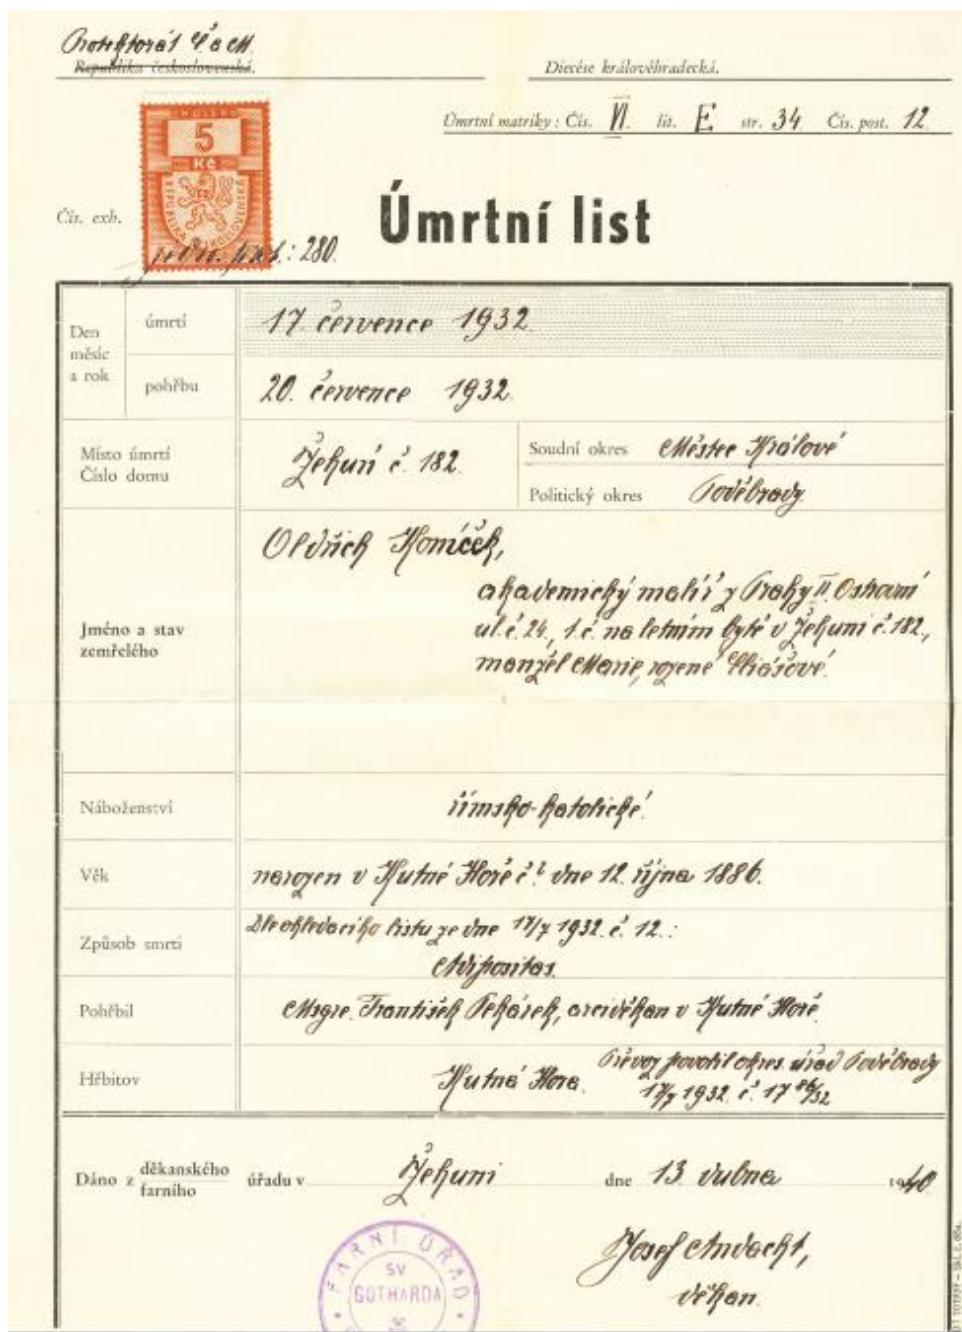 Protektorát Č a M.
Republika československá.
Diecése královéhradecká.
Úmrtní matriky: Čís. VI. lit. E str. 34 Čís. post. 12
KOLEK
5
Kč
REPUBLIKA ČESKOSLOVENSKÁ
Čís. exh.
: 280.
Úmrtní list
Den měsíc a rok
úmrtí
17. července 1932.
pohřbu
20. července 1932.
Místo úmrtí
Číslo domu
Žehuň č. 182.
Soudní okres Městec Králové
Politický okres Poděbrady
Jméno a stav
zemřelého
Oldřich Koníček,
akademický malíř z Prahy II. Ostrovní
ul. č. 24, t. č. na letním bytě v Žehuni č. 182,
manžel Marie, rozené Eliášové.
Náboženství
římsko-katolické.
Věk
narozen v Kutné Hoře č ? dne 12. října 1886.
Způsob smrti
Dle ohledacího listu ze dne 17/7 1932. č. 12.:
Adipositas.
Pohřbil
Msgre. František Pekárek, arciděkan v Kutné Hoře.
Hřbitov
Kutná Hora.
Převoz povolil okres. úřad Poděbrady
17/7 1932. č. 17
Dáno z děkanského
farního
úřadu v Žehuni dne 13. dubna 1940
Josef Andacht,
děkan.
FARNÍ ÚŘAD
SV
GOTHARDA